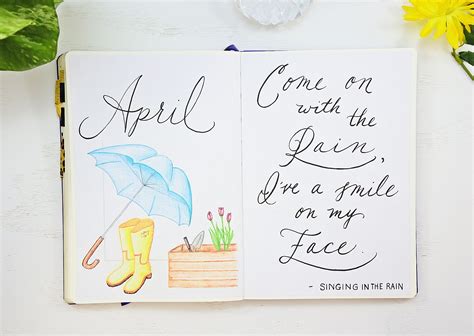 April
Come on
with the
Rain,
I've a smile
on my
Face.
- SINGING IN THE RAIN